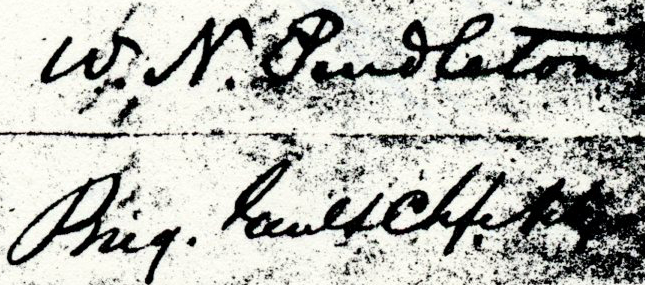 W. N. Pendleton
Brig. Genl & Chf. Arty